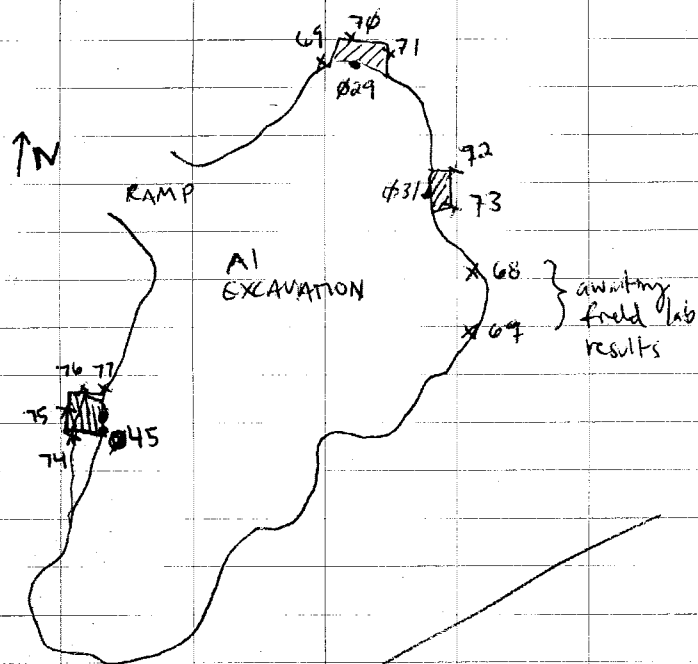 7Ø
69
71
Ø29
N
72
Ø31
73
RAMP
A1
EXCAVATION
68
69
awaiting
field lab
results
76 77
75
Ø45
74